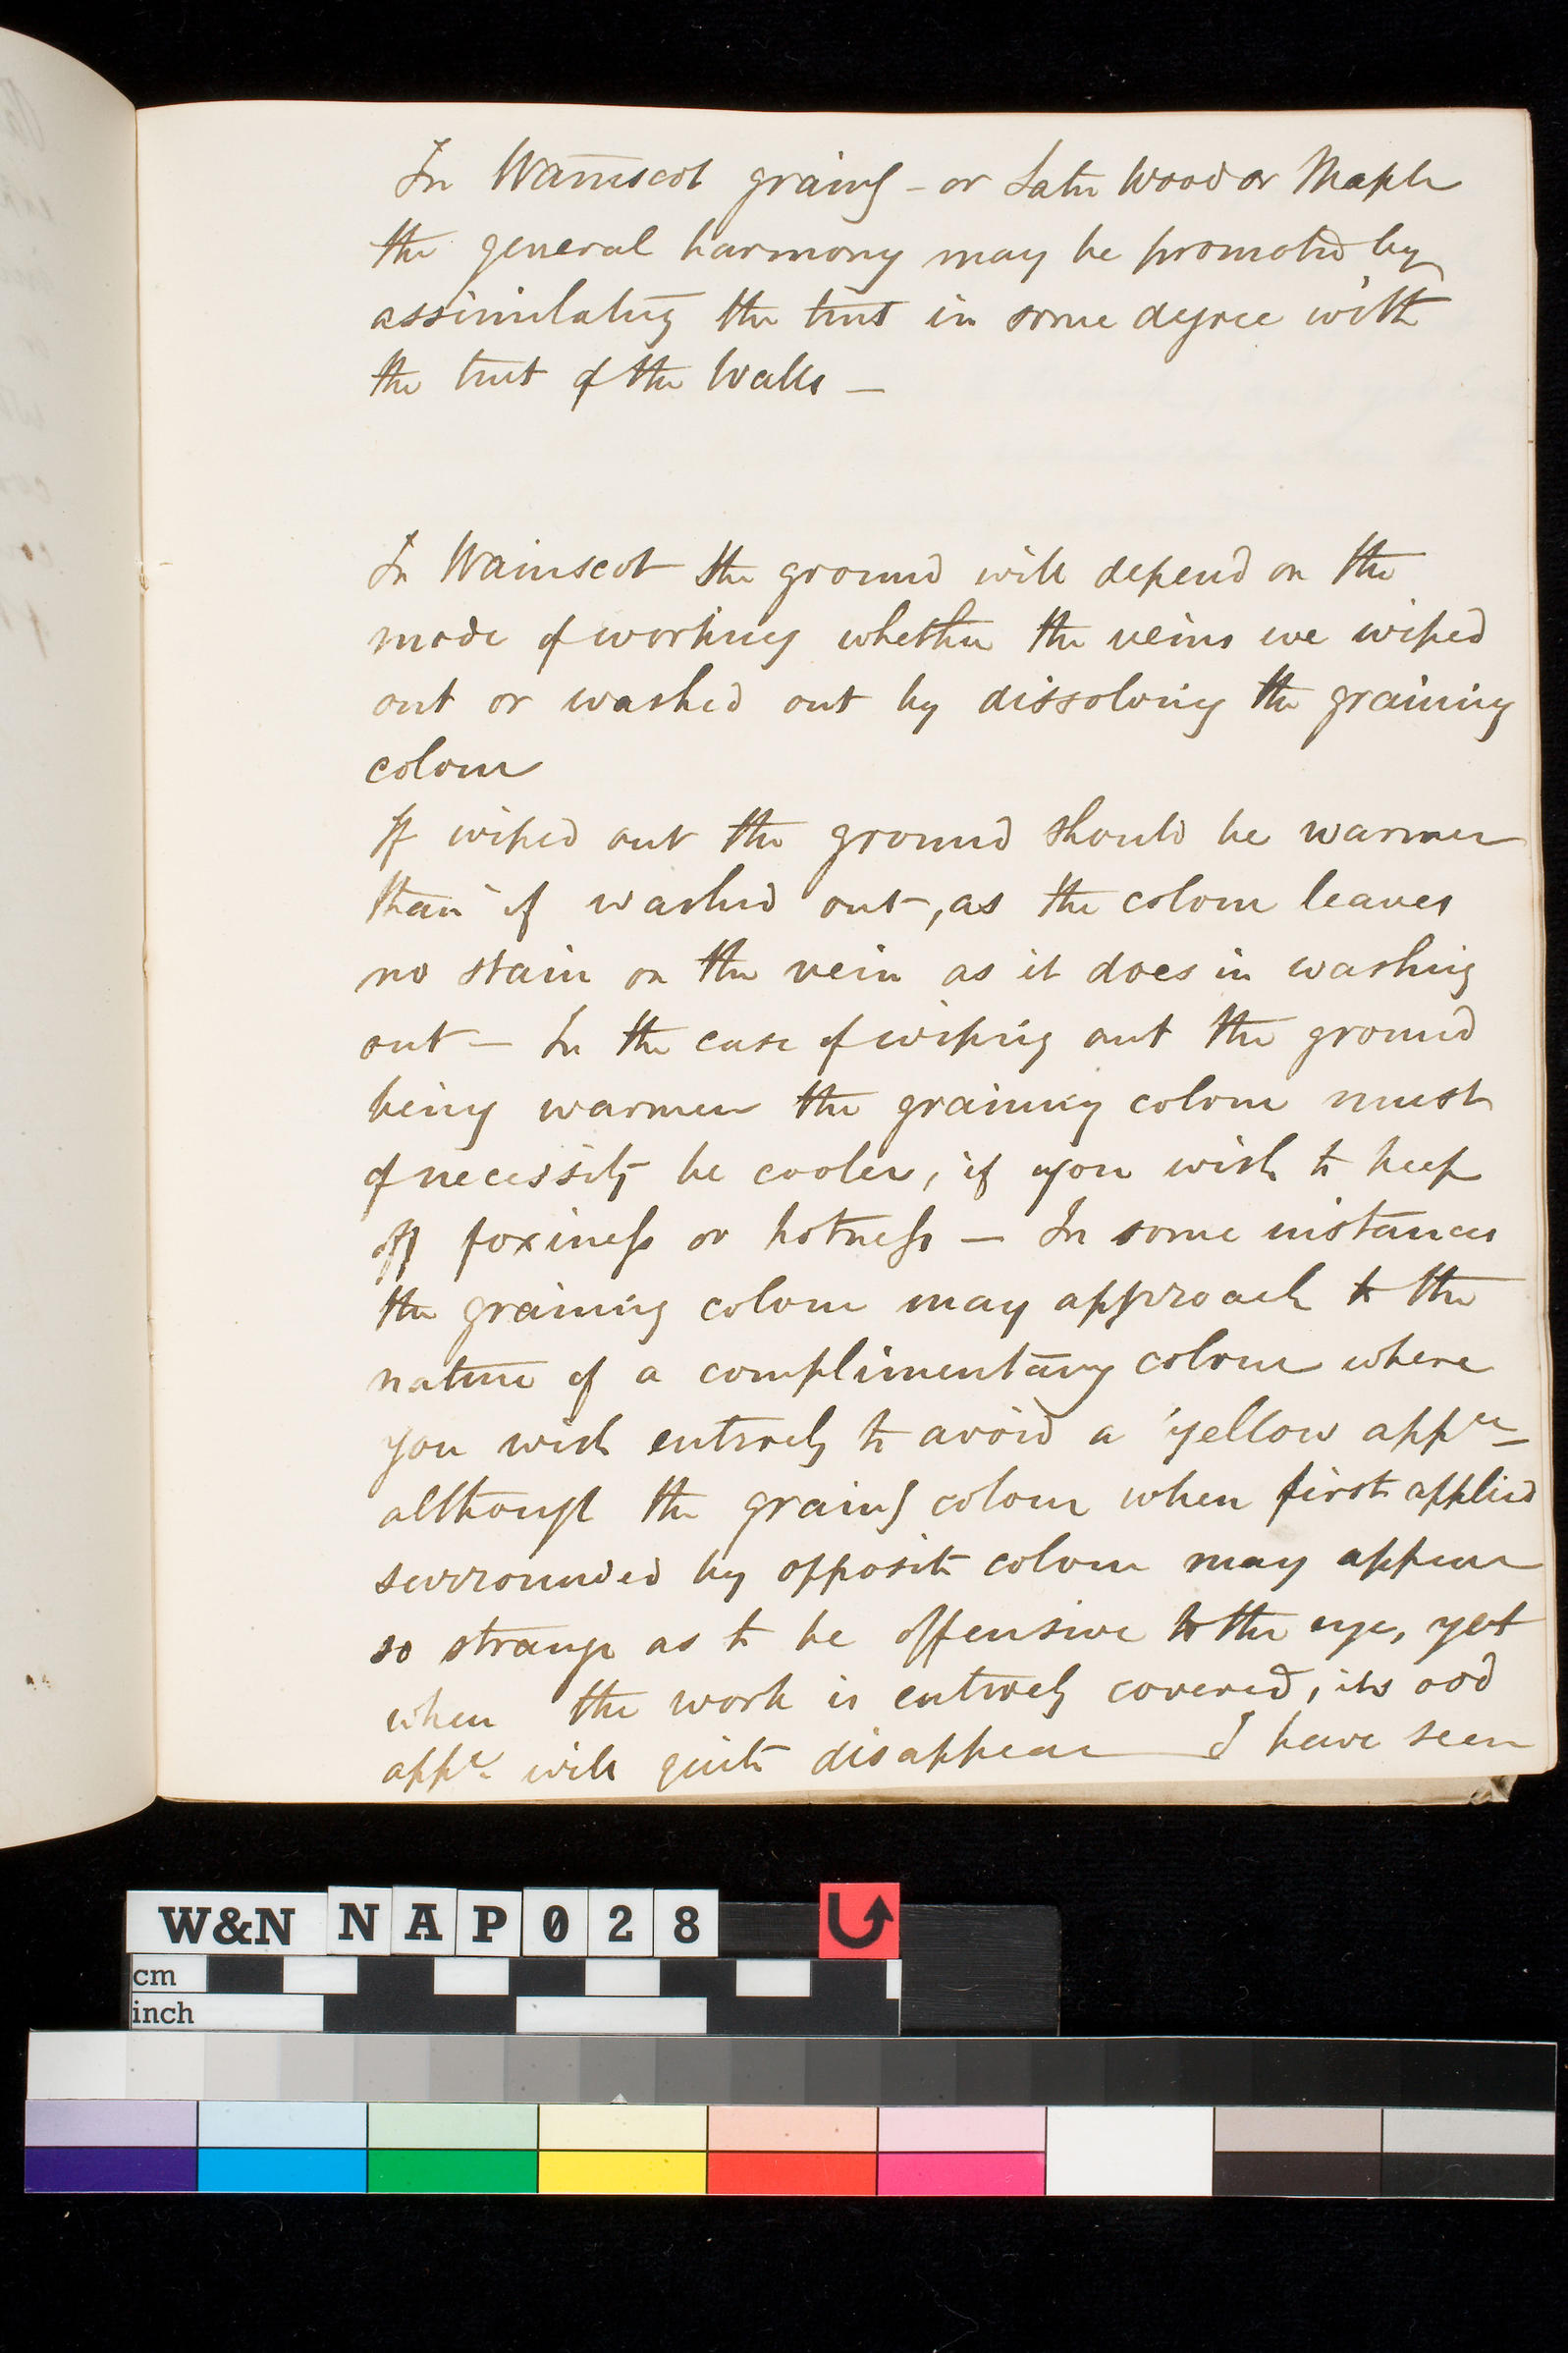 In Wainscot graing – or Satin Wood or Maple
the general harmony may be promoted by
assimilating the tint in some degree with
the tint of the Walls —
In Wainscot the ground will depend on the
mode of working whether the veins are wiped
out or washed out by dissolving the graining
colour
If wiped out the ground should be warmer
than if washed out, as the colour leaves
no stain on the vein as it does in washing
out — In the case of wiping out the ground
being warmer the graining colour must
of necessity be cooler, if you wish to keep
off foxiness or hotness — In some instances
the graining colour may approach to the
nature of a complimentary colour where
you wish entirely to avoid a yellow appce –
although the graing colour when first applied
surrounded by opposite colour may appear
so strange as to be offensive to the eye, yet
when the work is entirely covered, its odd
appce will quite disappear — I have seen
W&N NAP028
cm
inch